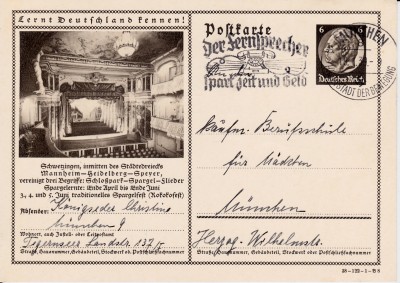 Lernt Deutschland kennen!
Postkarte
MÜNCHEN
HAUPTSTADT DER BEWEGUNG
Der Fernsprecher
spart Zeit und Geld
6 6
Deutsches Reich
Schwetzingen, inmitten des Städtedreiecks
Mannheim–Heidelberg–Speyer,
vereinigt drei Begriffe: Schloßpark–Spargel–Flieder
Spargelernte: Ende April bis Ende Juni
3., 4. und 5. Juni traditionelles Spargelfest (Rokokofest)
Absender: Königseder Christine
München 9
Wohnort, auch Zustell- oder Leitpostamt
Tegernseer Landstr. 137/
Straße, Hausnummer, Gebäudeteil, Stockwerk oder Postschließfachnummer
Kaufm. Berufsschule
für Mädchen
München
Herzog-Wilhelmstr.
Straße, Hausnummer, Gebäudeteil, Stockwerk oder Postschließfachnummer
38–122–1–B8